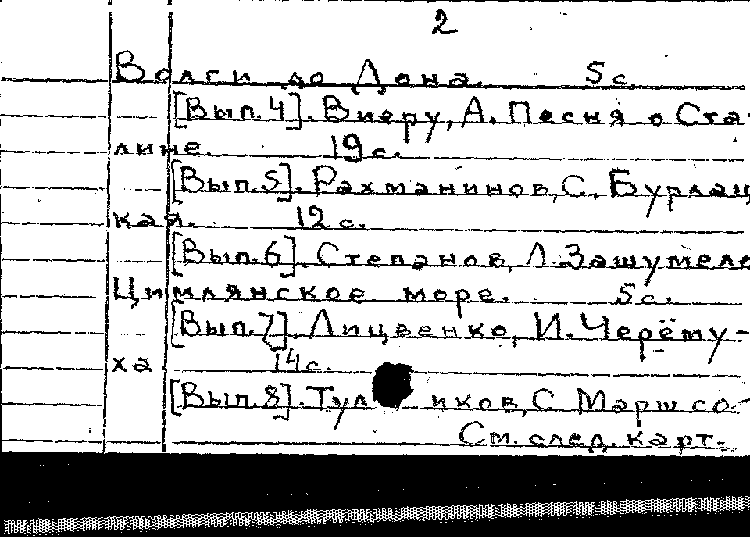 2
Волги до Дона. 5 с.
[Вып. 4]. Виеру, А. Песня о Ста-
лине. 19 с.
[Вып. 5]. Рахманинов, С. Бурлац
кая. 12 с.
[Вып. 6]. Степанов, Л. Зашумело
Цимлянское море. 5 с.
[Вып. 7]. Лицвенко, И. Черёму-
ха 14 с.
[Вып. 8]. Тул иков, С. Марш со-
См. след. карт.